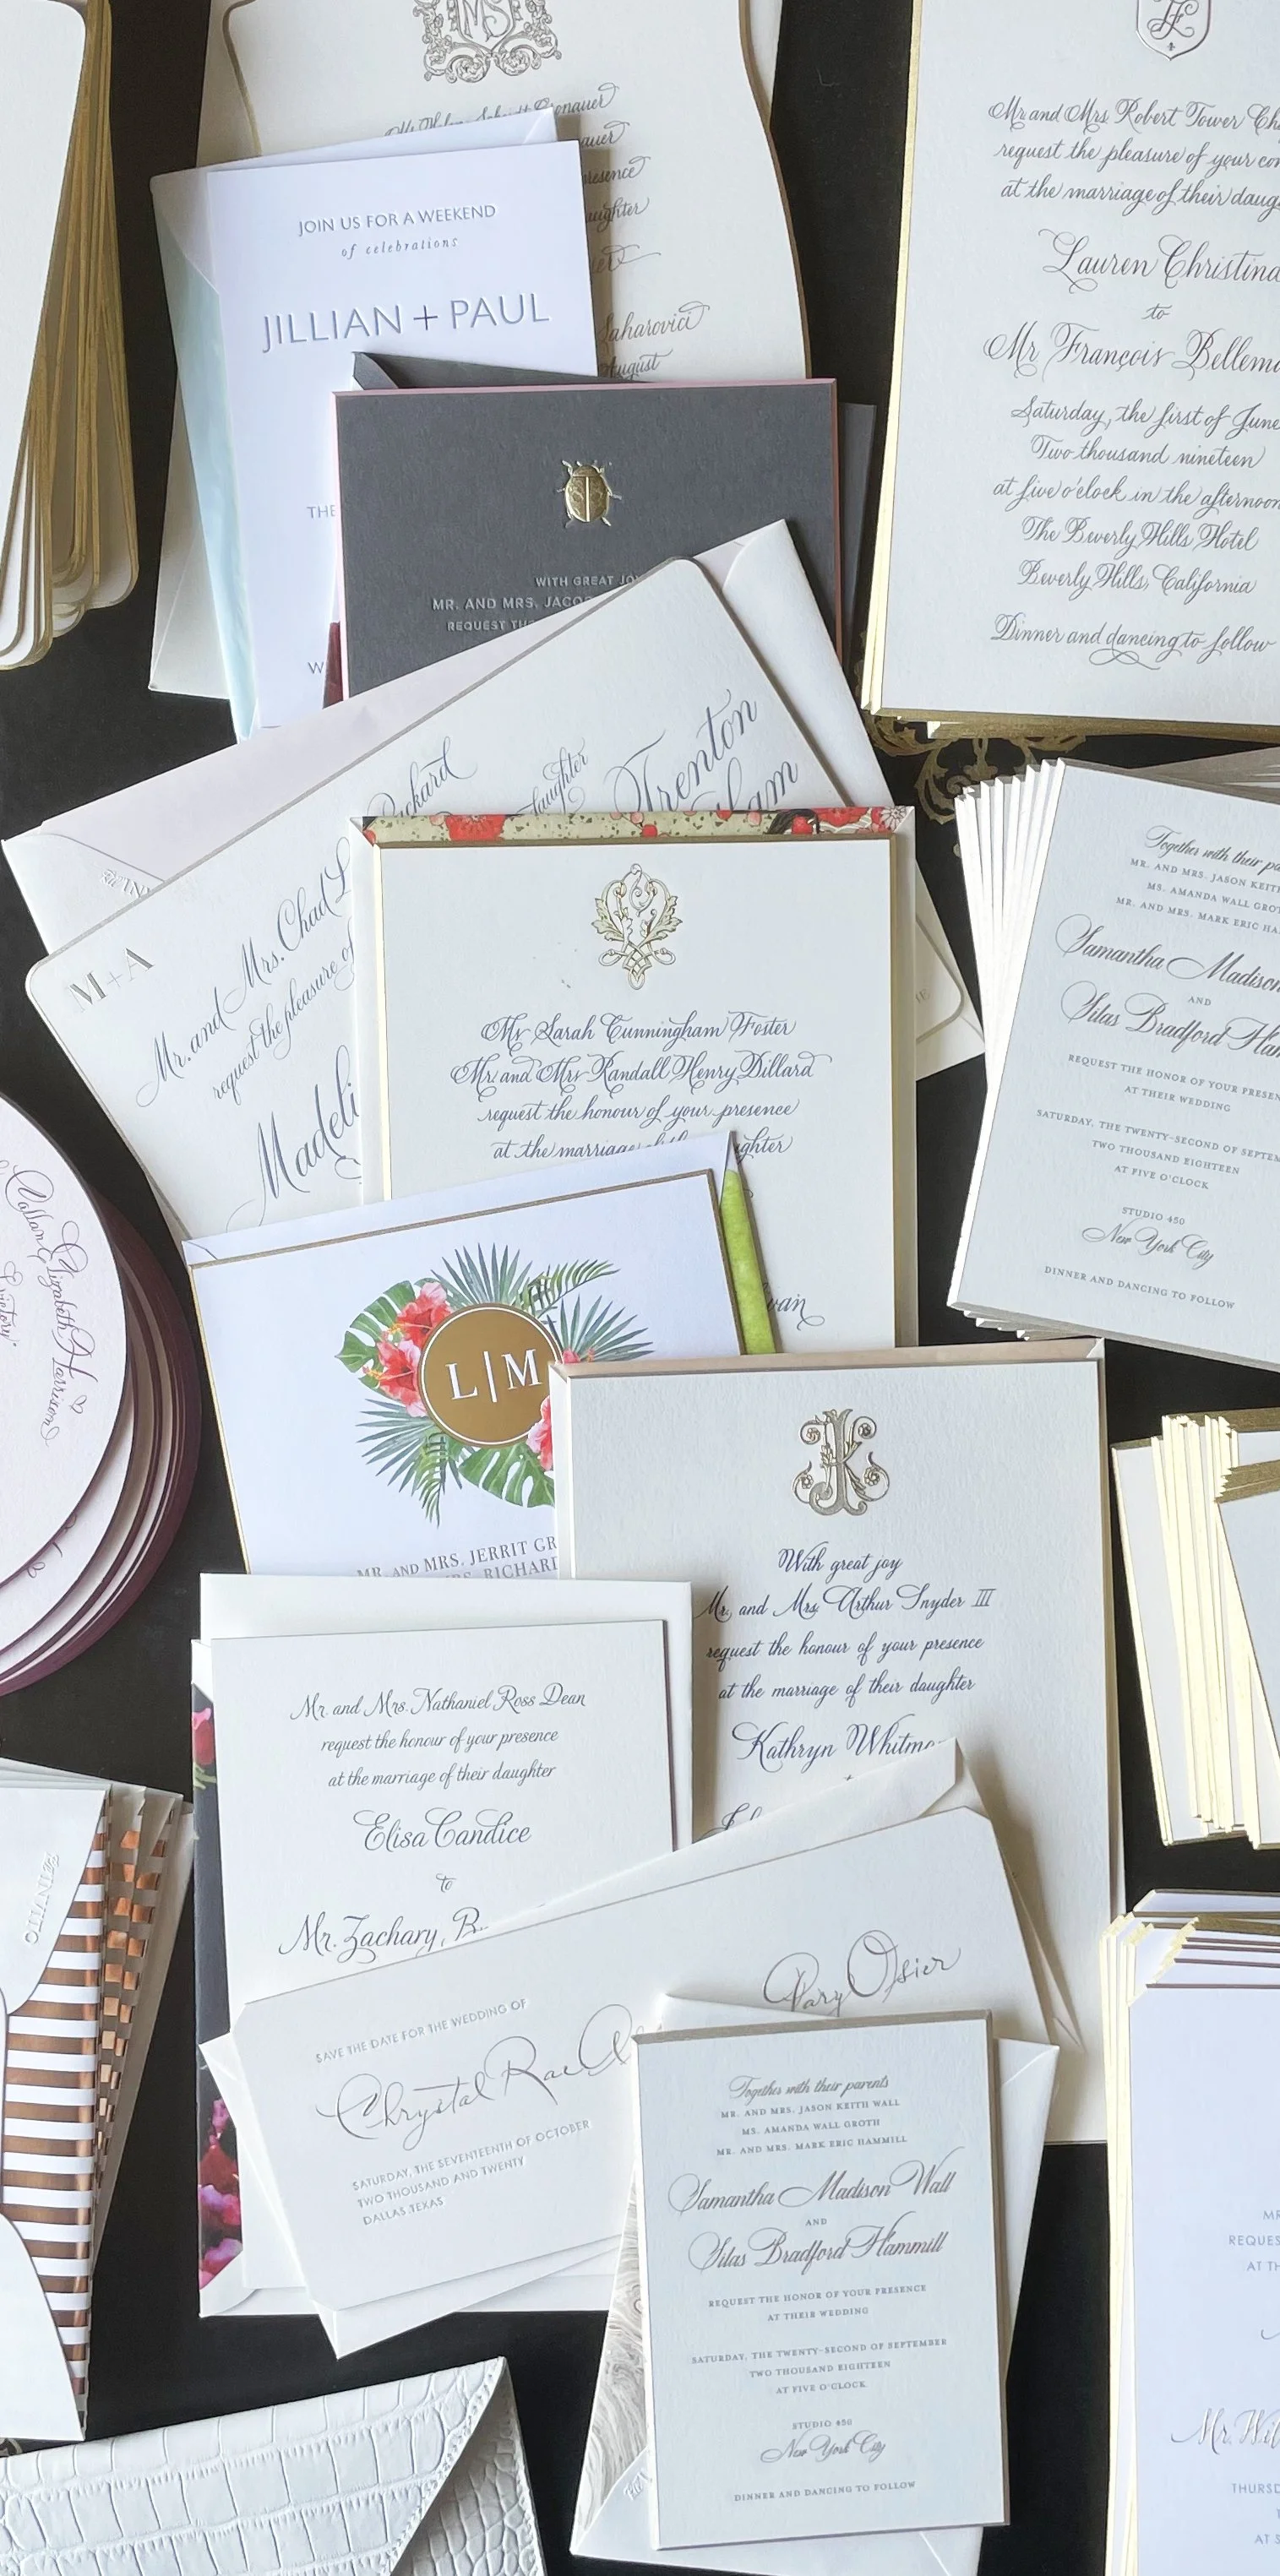 JOIN US FOR A WEEKEND
of celebrations
JILLIAN + PAUL
THE
W
presence
Saharovici
August
Mr and Mrs Robert Tower
request the pleasure of your
at the marriage of their
Lauren Christina
to
Mr François
Saturday, the first of June
Two thousand nineteen
at five o'clock in the afternoon
The Beverly Hills Hotel
Beverly Hills, California
Dinner and dancing to follow
WITH GREAT
MR. AND MRS.
REQUEST
M+A
Mr. and Mrs. Chad L
Packard
request the pleasure of
daughter
Madeli
Trenton
Mr Sarah Cunningham Foster
Mr. and Mrs Randall Henry Dillard
request the honour of your presence
at the marriage
Together with their
MR. AND MRS. JASON KEITH
MS. AMANDA WALL GROTH
MR. AND MRS. MARK ERIC
Samantha Madison
AND
Silas Bradford
REQUEST THE HONOR OF YOUR
AT THEIR WEDDING
SATURDAY, THE TWENTY-SECOND OF
TWO THOUSAND EIGHTEEN
AT FIVE O'CLOCK
STUDIO 450
New York City
DINNER AND DANCING TO FOLLOW
Elizabeth
L|M
MR. AND MRS. JERRIT
RICHARD
With great joy
Mr. and Mrs. Arthur Snyder III
request the honour of your presence
at the marriage of their daughter
Kathryn
Mr. and Mrs. Nathaniel Ross Dean
request the honour of your presence
at the marriage of their daughter
Elisa Candice
to
Mr. Zachary
SAVE THE DATE FOR THE WEDDING OF
Chrystal Rae
Osier
SATURDAY, THE SEVENTEENTH OF OCTOBER
TWO THOUSAND AND TWENTY
DALLAS, TEXAS
Together with their parents
MR. AND MRS. JASON KEITH WALL
MS. AMANDA WALL GROTH
MR. AND MRS. MARK ERIC HAMMILL
Samantha Madison Wall
AND
Silas Bradford Hammill
REQUEST THE HONOR OF YOUR PRESENCE
AT THEIR WEDDING
SATURDAY, THE TWENTY-SECOND OF SEPTEMBER
TWO THOUSAND EIGHTEEN
AT FIVE O'CLOCK
STUDIO 450
New York City
DINNER AND DANCING TO FOLLOW
Mr. Wil